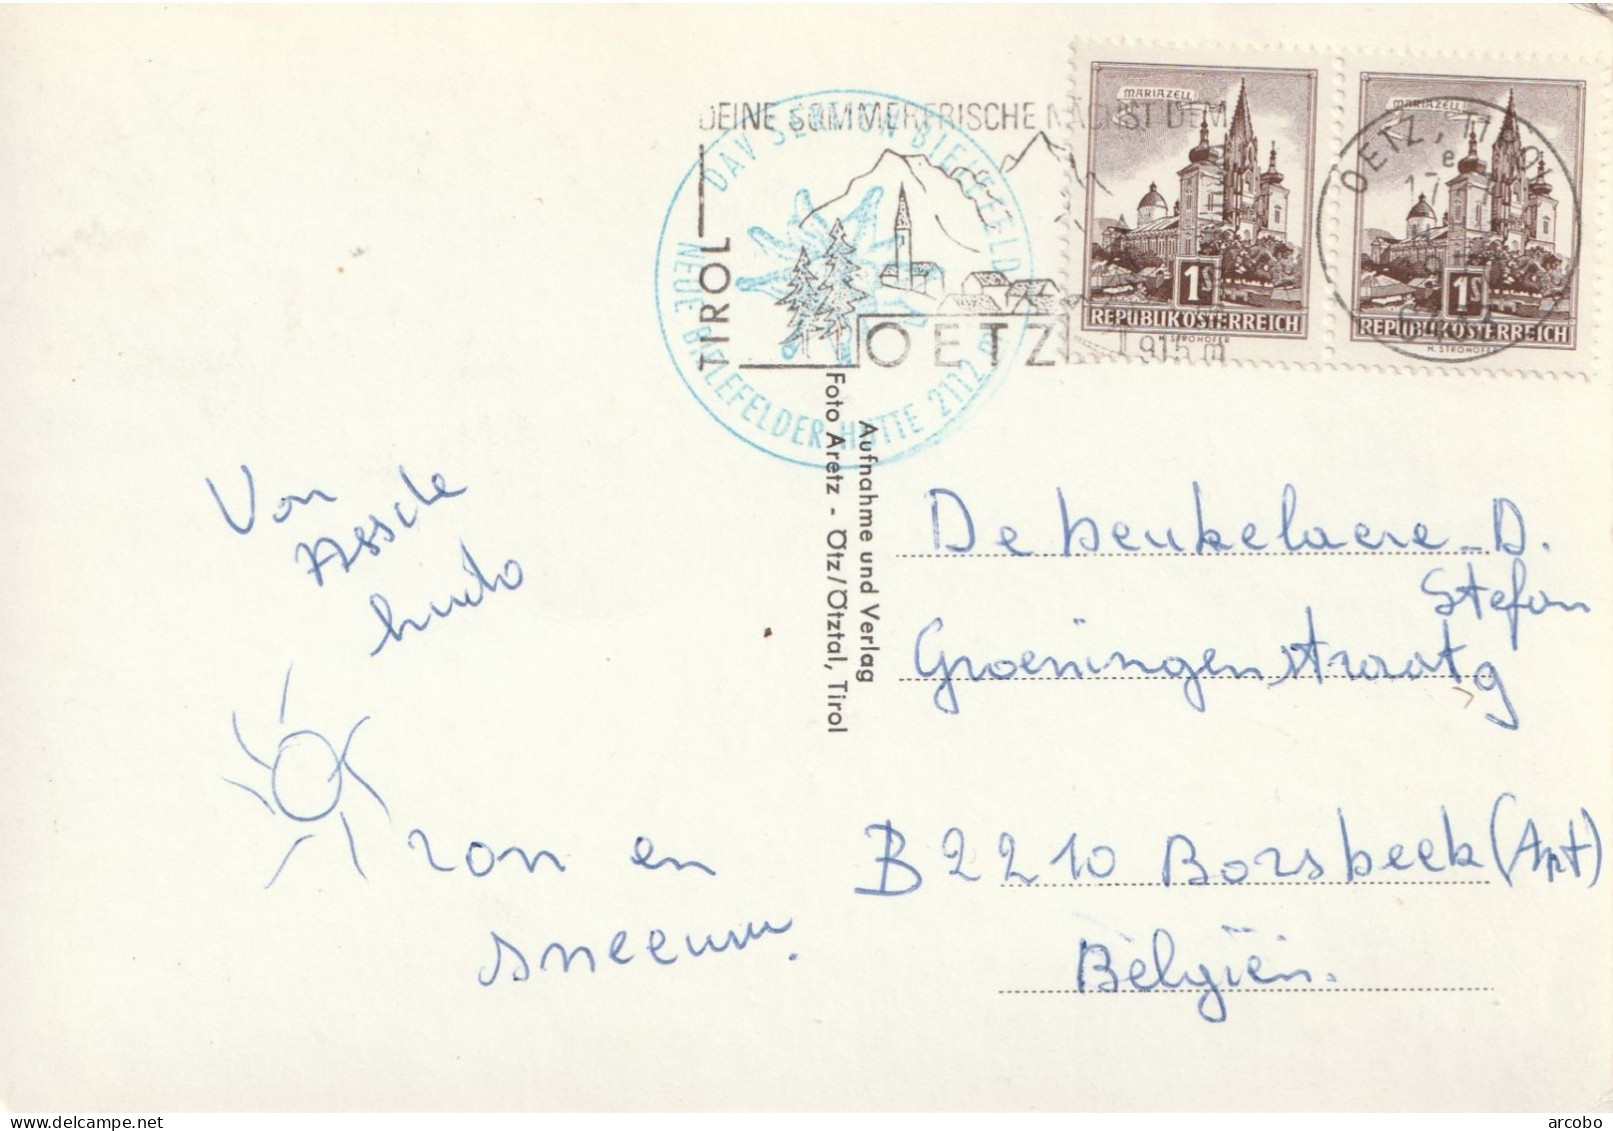 DEINE SOMMERFRISCHE NÄCHST DEM
TIROL
OETZ
915 m
DAV SEKTION BIELEFELD
NEUE BIELEFELDER HÜTTE 2112 m
MARIAZELL
1S
REPUBLIK OSTERREICH
H. STROHOFER
MARIAZELL
1S
REPUBLIK OSTERREICH
H. STROHOFER
OETZ,
Aufnahme und Verlag
Foto Aretz - Ötz/Ötztal, Tirol
Von
zon en
sneeuw.
De beukelaere - D.
Stefan
Groeningenstraat 9
B 2210 Borsbeek (Ant)
Belgiën.
arcobo